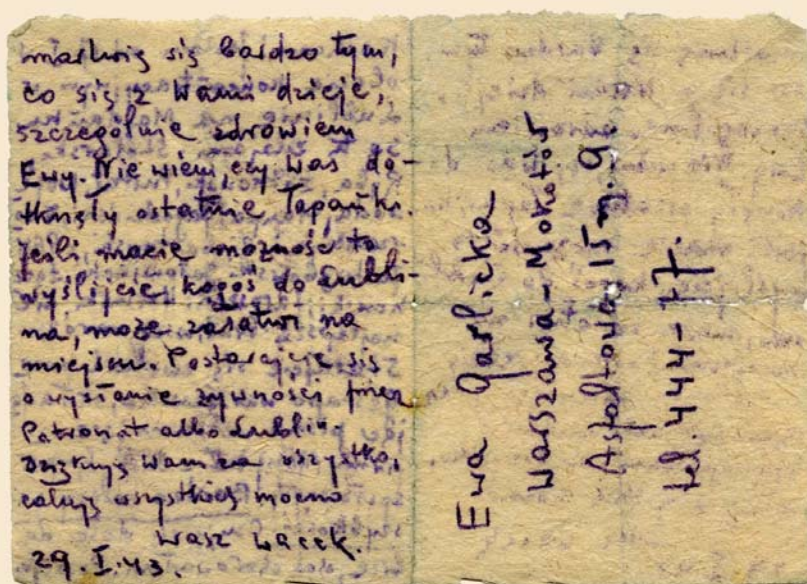 martwię się bardzo tym,
co się z Wami dzieje,
szczególnie zdrowiem
Ewy. Nie wiem, czy was do-
tknęły ostatnie łapanki.
Jeśli macie możność to
wyślijcie kogoś do Lubli-
na, może załatwi na
miejscu. Postarajcie się
o wysłanie żywności przez
Patronat albo Lublin.
Dziękuję Wam za wszystko,
całuję wszystkich mocno
Wasz Wacek.
29.I.43.
Ewa Garlicka
Warszawa-Mokotów
Asfaltowa 15 m. 9.
tel. 444-77.